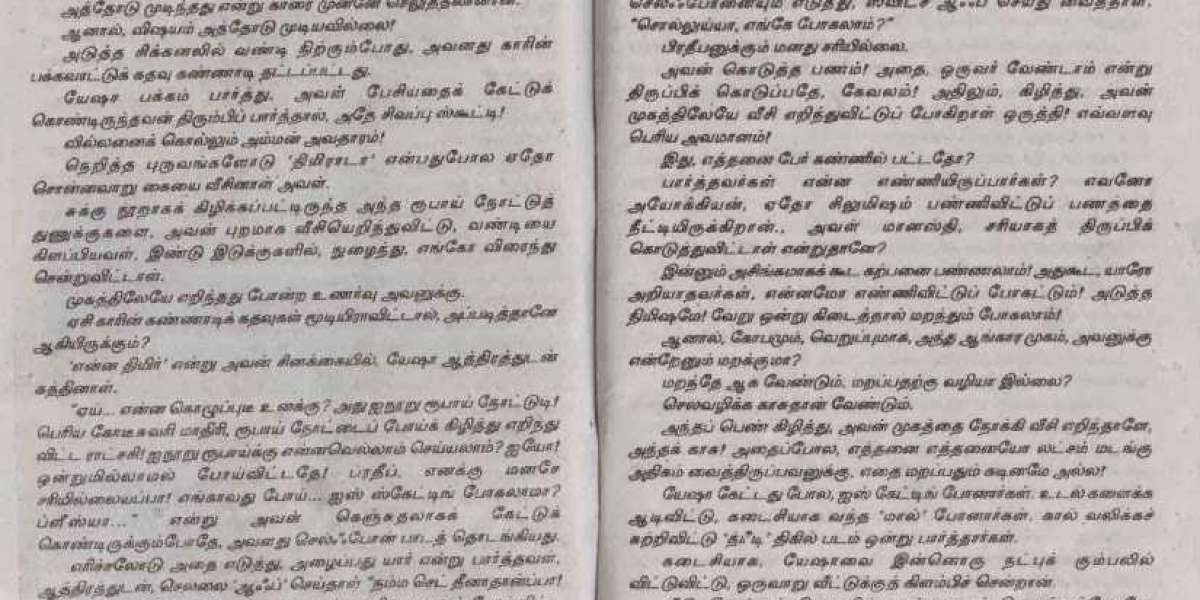 அத்தோடு முடிந்தது என்று காரை முன்னே செலுத்தலானான்.
ஆனால், விஷயம் அத்தோடு முடியவில்லை!
அடுத்த சிக்கனலில் வண்டி நிற்கும்போது, அவனது காரின்
பக்கவாட்டுக் கதவு கண்ணாடி தட்டப்பட்டது.
யேஷா பக்கம் பார்த்து, அவள் பேசியதைக் கேட்டுக்
கொண்டிருந்தவன் திரும்பிப் பார்த்தால், அதே சிவப்பு ஸ்கூட்டி!
வில்லனைக் கொல்லும் அம்மன் அவதாரம்!
நெறித்த புருவங்களோடு 'திமிராடா' என்பதுபோல ஏதோ
சொன்னவாறு கையை வீசினாள் அவள்.
சுக்கு நூறாகக் கிழிக்கப்பட்டிருந்த அந்த ரூபாய் நோட்டுத்
துணுக்குகளை, அவன் புறமாக வீசியெறிந்துவிட்டு, வண்டியை
கிளப்பியவள், இண்டு இடுக்குகளில், நுழைந்து, எங்கோ விரைந்து
சென்றுவிட்டாள்.
முகத்திலேயே எறிந்தது போன்ற உணர்வு அவனுக்கு.
ஏசி காரின் கண்ணாடிக் கதவுகள் மூடியிராவிட்டால், அப்படித்தானே
ஆகியிருக்கும்?
'என்ன திமிர்' என்று அவன் சினக்கையில், யேஷா ஆத்திரத்துடன்
கத்தினாள்.
"ஏய்... என்ன கொழுப்புடீ உனக்கு? அது ஐநூறு ரூபாய் நோட்டுடி!
பெரிய கோடீசுவரி மாதிரி, ரூபாய் நோட்டைப் போய்க் கிழித்து எறிந்து
விட்ட ராட்சசி! ஐநூறு ரூபாய்க்கு என்னவெல்லாம் செய்யலாம்? ஐயோ!
ஒன்றுமில்லாமல் போய்விட்டதே! பரதீப், எனக்கு மனசே
சரியில்லையப்பா! எங்காவது போய்... ஐஸ் ஸ்கேட்டிங் போகலாமா?
ப்ளீஸ்யா..." என்று அவள் கெஞ்சுதலாகக் கேட்டுக்
கொண்டிருக்கும்போதே, அவளது செல்ஃபோன் பாடத் தொடங்கியது.
எரிச்சலோடு அதை எடுத்து, அழைப்பது யார் என்று பார்த்தவள்,
ஆத்திரத்துடன், செல்லை 'ஆஃப்' செய்தாள் "நம்ம செட் தீனாதான்ப்பா!
செல்ஃபோனையும் எடுத்து, ஸ்விட்ச் ஆஃப் செய்து வைத்தாள்.
"சொல்லுய்யா, எங்கே போகலாம்?"
பிரதீபனுக்கும் மனது சரியில்லை.
அவன் கொடுத்த பணம்! அதை, ஒருவர் வேண்டாம் என்று
திருப்பிக் கொடுப்பதே, கேவலம்! அதிலும், கிழித்து, அவன்
முகத்திலேயே வீசி எறிந்துவிட்டுப் போகிறாள் ஒருத்தி! எவ்வளவு
பெரிய அவமானம்!
இது, எத்தனை பேர் கண்ணில் பட்டதோ?
பார்த்தவர்கள் என்ன எண்ணியிருப்பார்கள்? எவனோ
அயோக்கியன், ஏதோ சிலுமிஷம் பண்ணிவிட்டுப் பணத்தை
நீட்டியிருக்கிறான்., அவள் மானஸ்தி, சரியாகத் திருப்பிக்
கொடுத்துவிட்டாள் என்றுதானே?
இன்னும் அசிங்கமாகக் கூட கற்பனை பண்ணலாம்! அதுகூட, யாரோ
அறியாதவர்கள், என்னமோ எண்ணிவிட்டுப் போகட்டும்! அடுத்த
நிமிஷமே! வேறு ஒன்று கிடைத்தால் மறந்தும் போகலாம்!
ஆனால், கோபமும், வெறுப்புமாக, அந்த ஆங்கார முகம், அவனுக்கு
என்றேனும் மறக்குமா?
மறந்தே ஆக வேண்டும். மறப்பதற்கு வழியா இல்லை?
செலவழிக்க காசுதான் வேண்டும்.
அந்தப் பெண் கிழித்து, அவன் முகத்தை நோக்கி வீசி எறிந்தாளே,
அந்தக் காசு! அதைப்போல, எத்தனை எத்தனையோ லட்சம் மடங்கு
அதிகம் வைத்திருப்பவனுக்கு, எதை மறப்பதும் கடினமே அல்ல!
யேஷா கேட்டது போல, ஐஸ் கேட்டிங் போனார்கள். உடல் களைக்க
ஆடிவிட்டு, கடைசியாக வந்த 'மால்' போனார்கள். கால் வலிக்கச்
சுற்றிவிட்டு 'த்ரீடி' திகில் படம் ஒன்று பார்த்தார்கள்.
கடைசியாக, யேஷாவை இன்னொரு நட்புக் கும்பலில்
விட்டுவிட்டு, ஒருவாறு வீட்டுக்குக் கிளம்பிச் சென்றான்.